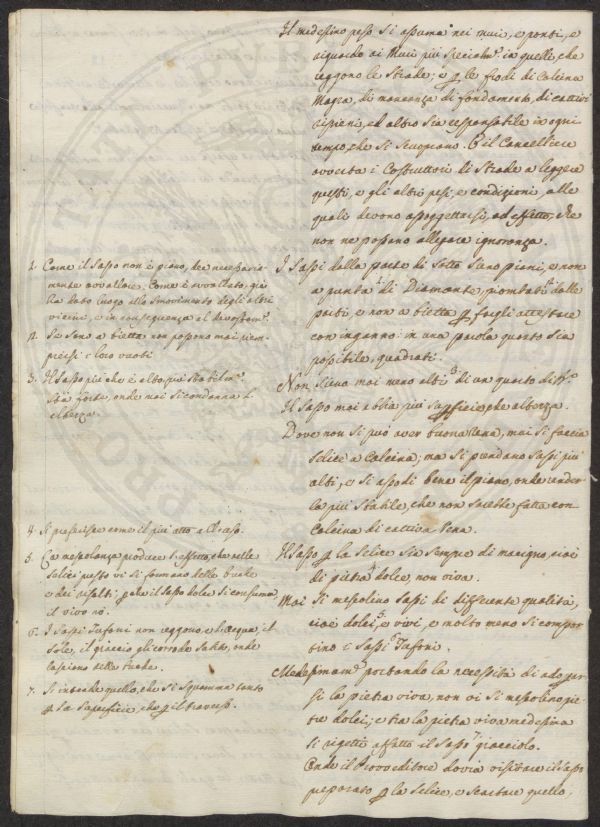 Il medesimo peso si assuma nei muri, e ponti, e
riguardo ai Muri più specialm.e in quelle, che
reggono le Strade; e p le frodi di Calcina
Magra, di mancanza di fondamento, di cattivi
ripieni, ed altro sia responsabile in ogni
tempo, che si scuoprano. E il Cancelliere
avverta i Costruttori di Strade a leggere
questi, e gli altri pesi, e condizioni, alle
quali devono assoggettarsi, ad effetto, che
non ne possano allegare ignoranza.
1. Come il Sasso non è piano, dee necessaria-
mente avvallare. Come è avvallato, già
ha dato luogo allo smovimento degli altri
vicini, e in conseguenza al
2. Se sono a bietta non possono mai riem-
piersi i loro vuoti
3. Il Sasso più che è alto, più stabilm.e
sta forte, onde mai si condanna l'
altezza.
4. Si preferisce come il più atto al
5. La mescolanza produce l'effetto, che nelle
Selici presto vi si formano delle buche
e dei risalti, p che il Sasso dolce si consuma,
il vivo no.
6. I Sassi Tufoni non reggono, e l'acqua, il
Sole, il giaccio gli corrode subito, onde
lasciano delle buche.
7. S'intende quello, che si squamma tanto
p la Superficie che p il traverso.
I Sassi dalla parte di sotto sieno piani, e non
a punta di Diamante, piombati dalle
parti, e non a bietta p fargli attestare
con inganno: in una parola quanto sia
possibile, quadrati.
Non sieno mai meno alti di un quarto di
Il Sasso mai abbia più superficie, che altezza.
Dove non si può aver buona rena, mai si faccia
selice a Calcina; ma si prendano Sassi più
alti, e si assodi bene il piano, onde render-
la più stabile, che non sarebbe fatta con
Calcina di cattiva rena.
Il Sasso p la Selice sia sempre di macigno, cioè
di pietra dolce, non viva.
Mai si mescolino Sassi di differente qualità,
cioè dolci, e vivi, e molto meno si compor-
tino i Sassi Tufoni.
Medesimam.e portando la necessità di adoprar-
si la pietra viva, non vi si mescolino pie-
tre dolci; e tra la pietra viva medesima
si rigetti affatto il Sasso giacciolo.
Onde il Provveditore dovrà visitare il Sasso
preparato p la Selice, e scartare quello,